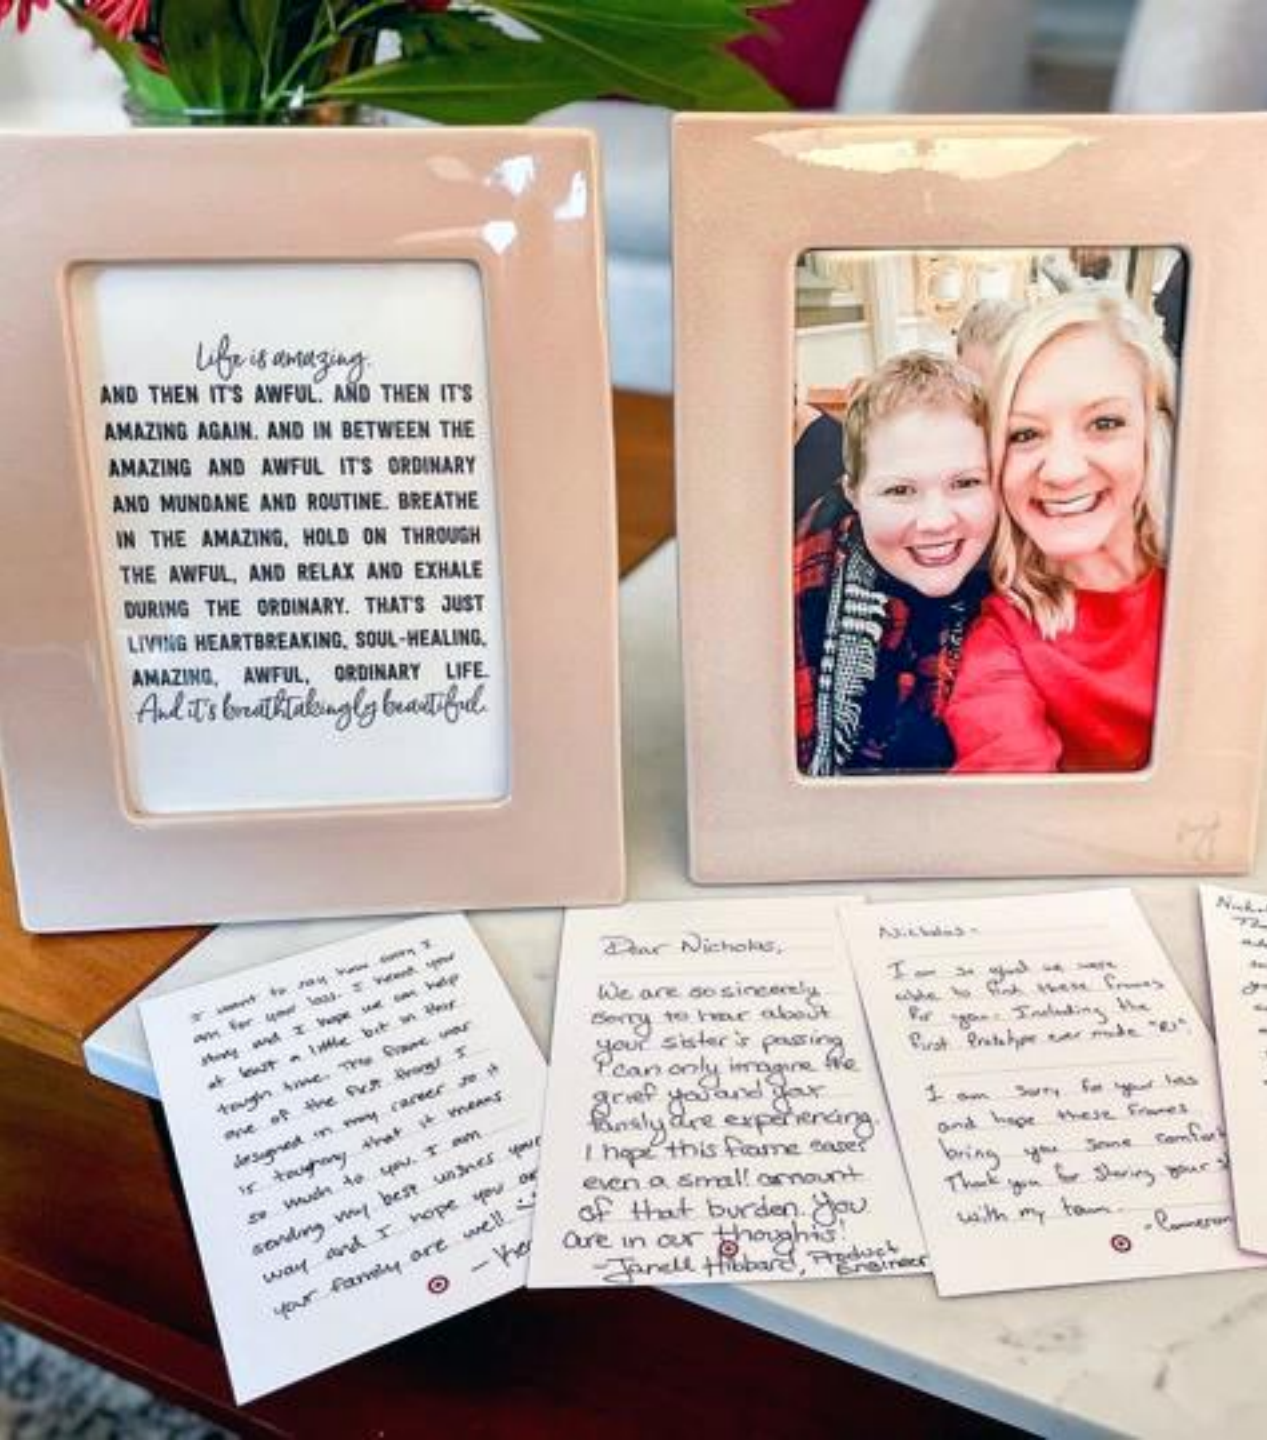 Life is amazing.
AND THEN IT'S AWFUL. AND THEN IT'S
AMAZING AGAIN. AND IN BETWEEN THE
AMAZING AND AWFUL IT'S ORDINARY
AND MUNDANE AND ROUTINE. BREATHE
IN THE AMAZING, HOLD ON THROUGH
THE AWFUL, AND RELAX AND EXHALE
DURING THE ORDINARY. THAT'S JUST
LIVING HEARTBREAKING, SOUL-HEALING,
AMAZING, AWFUL, ORDINARY LIFE.
And it's breathtakingly beautiful.
I want to say how sorry I
am for your loss. I heard your
story and I hope we can help
at least a little bit in this
tough time. This frame was
one of the first things I
designed in my career so it
is touching that it means
so much to you. I am
sending my best wishes your
way and I hope you and
your family are well :)
Dear Nicholas,
We are so sincerely
sorry to hear about
your sister's passing
I can only imagine the
grief you and your
family are experiencing.
I hope this frame eases
even a small amount
of that burden. You
are in our thoughts!
-Janell Hibbard, Product
Engineer
Nicholas-
I am so glad we were
able to find these frames
for you. Including the
first prototype ever made "R1"
I am sorry for your loss
and hope these frames
bring you some comfort
Thank you for sharing your
with my team.
-Cameron